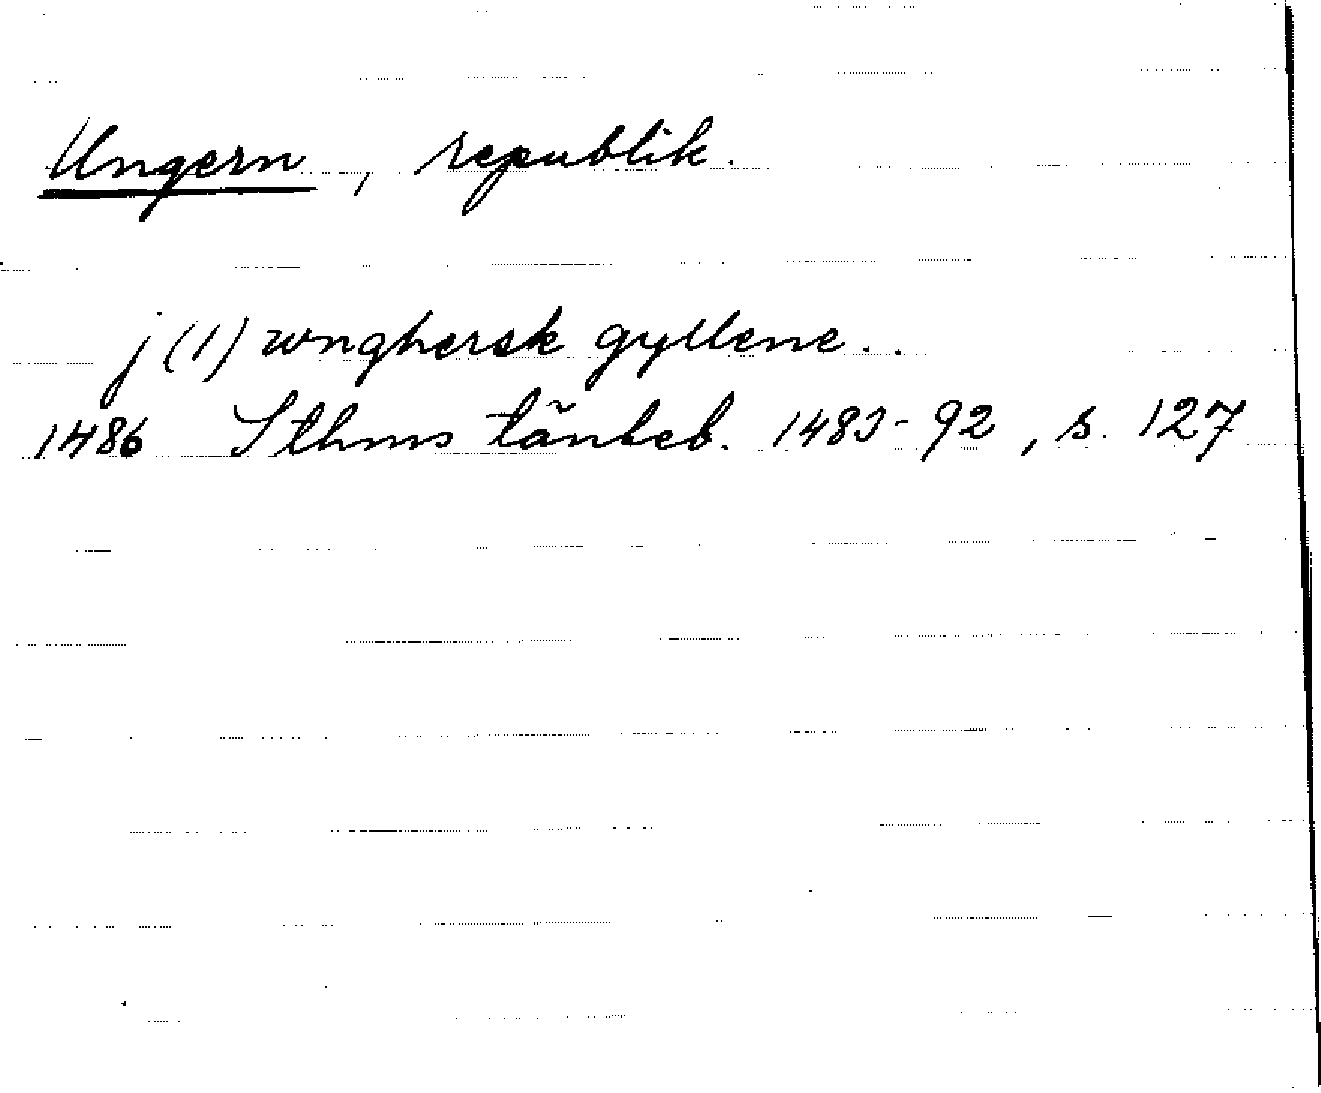 Ungern, republik.
j (1) wnghersk gyllene..
1486 Sthms tänkeb. 1483-92, s. 127